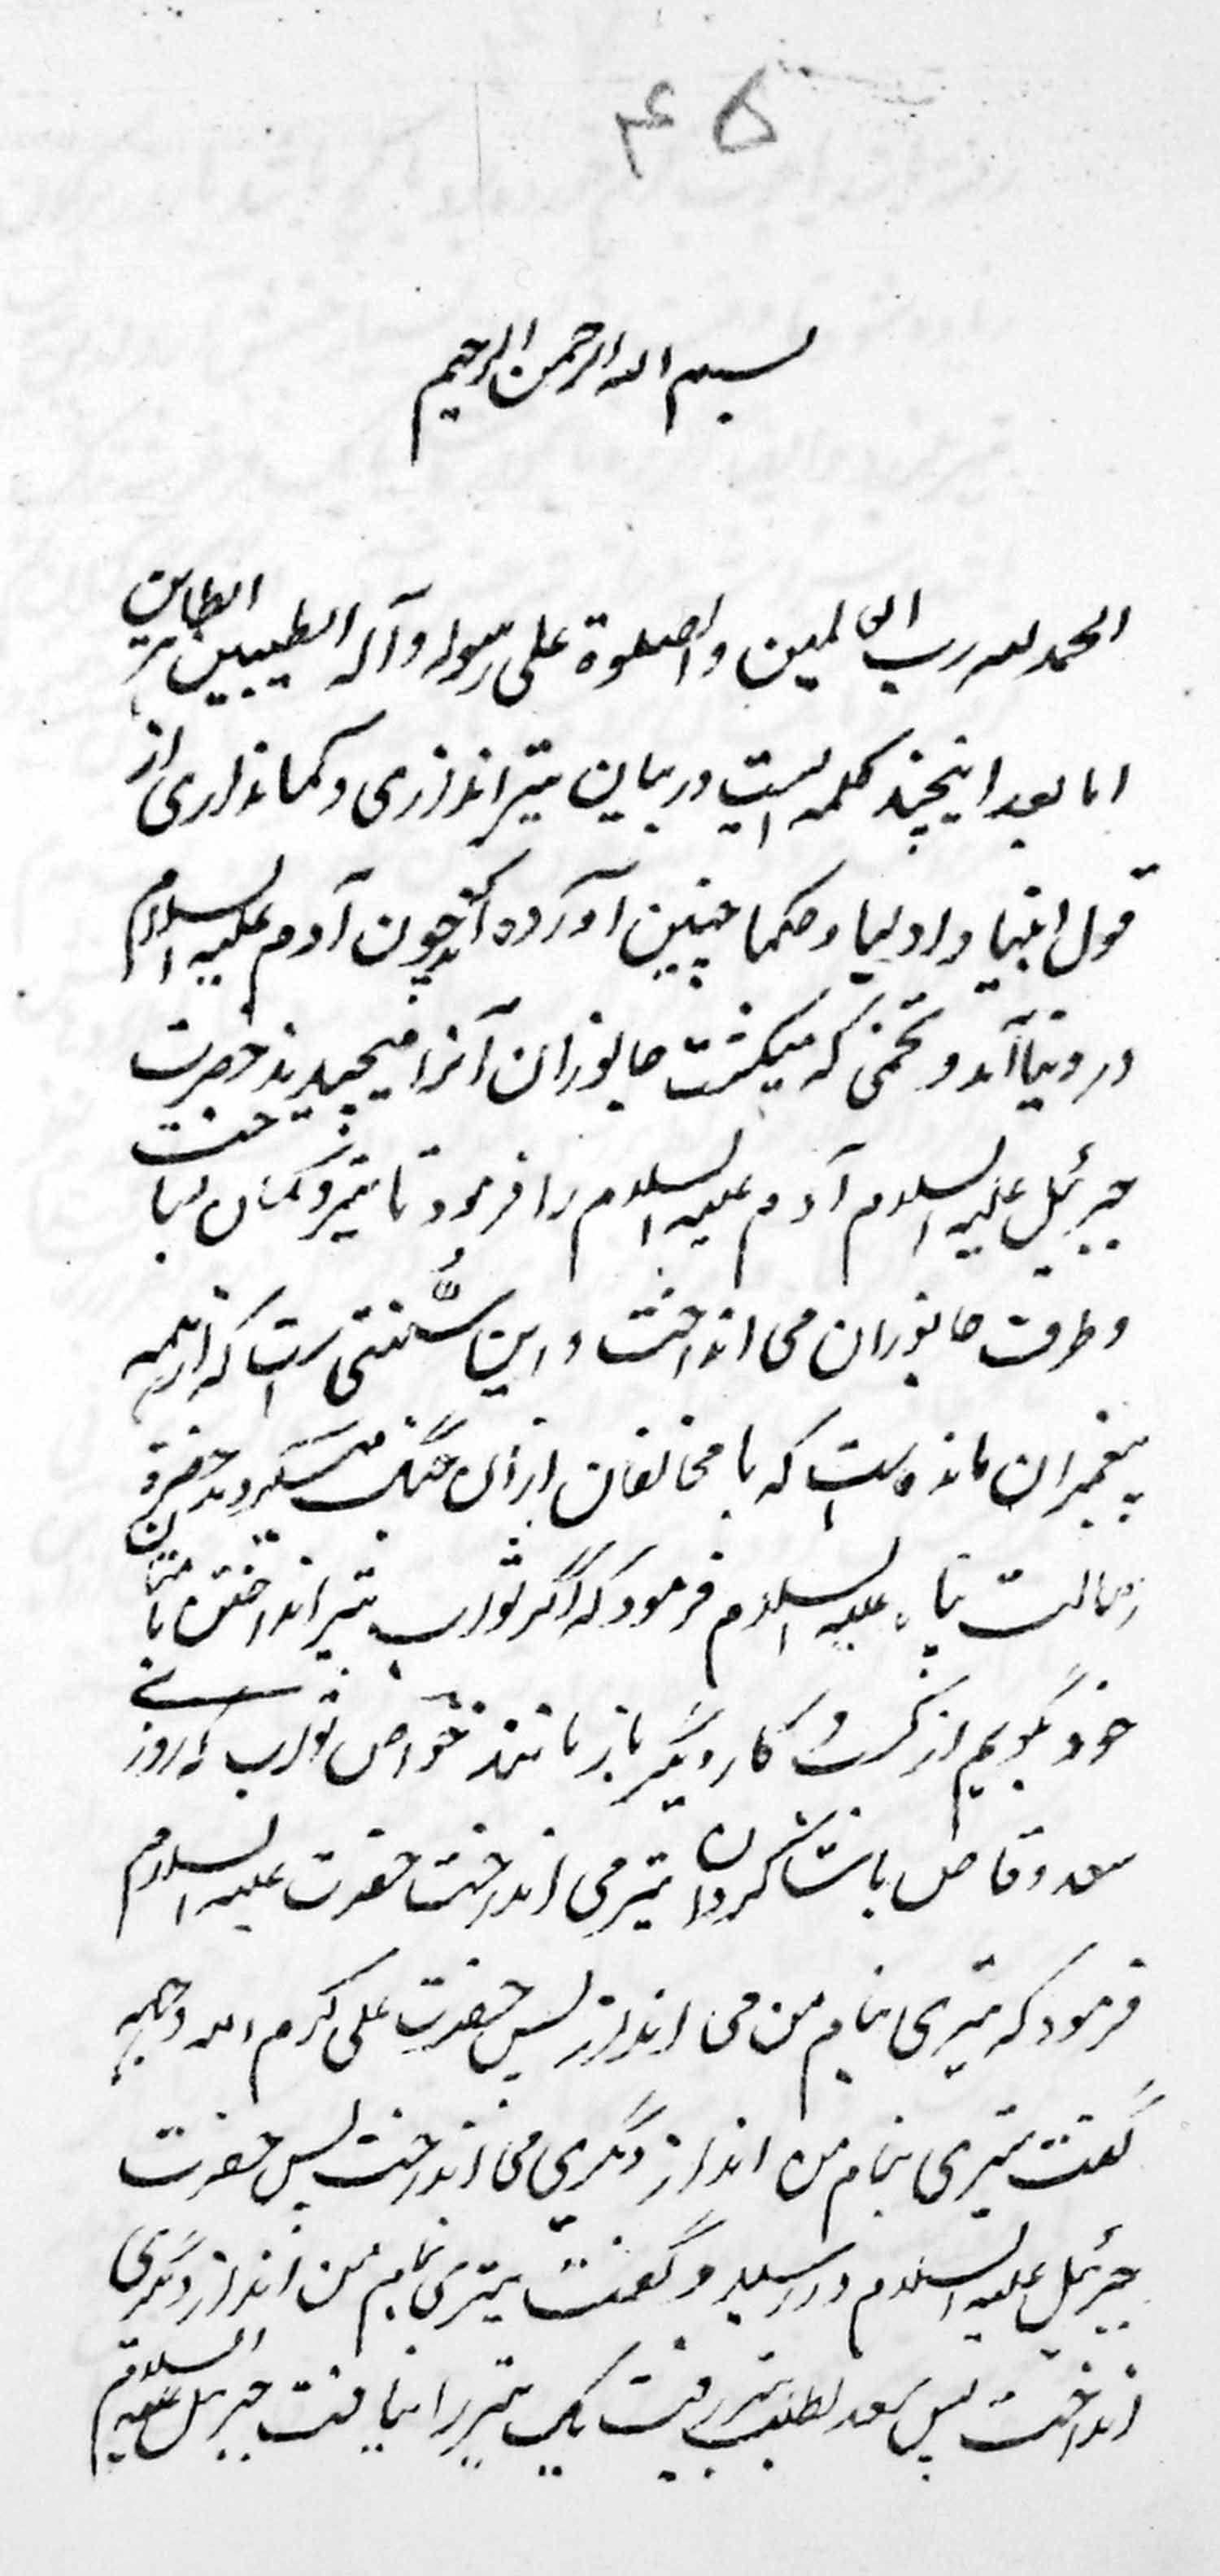 ۴۵
بسم الله الرحمن الرحیم
الحمد لله رب العالمین والصلوة علی رسوله وآله الطیبین الطاهرین
اما بعد اینچند کلمه ایست در بیان تیراندازی وکمانداری از
قول انبیا و اولیا و حکما چنین آورده اند که چون آدم علیه السلام
در دنیا آمد و تخمی که میکشت جانوران آنرا میچیدند حضرت
جبرئیل علیه السلام آدم علیه السلام را فرمود تا تیر و کمان بساخت
و طرف جانوران می انداخت و این سُنّتی است که از همه
پیغمبران مانده است که با مخالفان ازان جنگ میکردند حضرة
رسالت پناه علیه السلام فرمود که اگر ثواب تیر انداختن با امتان
خود بگویم از کشت و کار دیگر باز مانند خواص ثواب که روزی
سعد وقاص با شاکردان تیر می انداخت حضرت علیه السلام
فرمود که تیری بنام من می انداز پس حضرت علی کرم الله وجهه
گفت تیری بنام من انداز دگری می انداخت پس حضرت
جبرئیل علیه السلام در رسید و گفت تیری بنام من انداز دگری
انداخت پس سعد بطلب تیر رفت یک تیر را نیافت جبرئیل علیه السلام